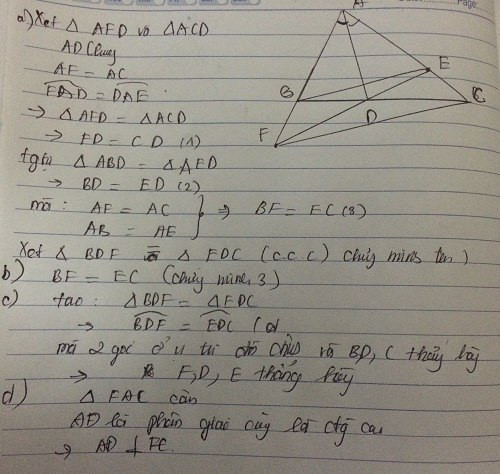 a) Xét Δ AFD và ΔACD
AD Chung
AF = AC
FAD = DAE
→ Δ AFD = ΔACD
→ FD = CD (1)
tgtự Δ ABD = Δ AED
→ BD = ED (2)
mà : AF = AC
AB = AE
⇒ BF = EC (3)
Xét Δ BDF = Δ EDC (c.c.c) chứng minh trên )
b) BF = EC (chứng minh 3)
c) tao : ΔBDF = ΔEDC
→ BDF = EDC
mà 2 góc ở vị trí đối và BD, C thẳng hàng
⇒ F, D, E thẳng hàng
d) Δ FAC cân
AD là phân giác cũng là đg cao
→ AD ⊥ FC.
A
B
C
D
E
F
Page: